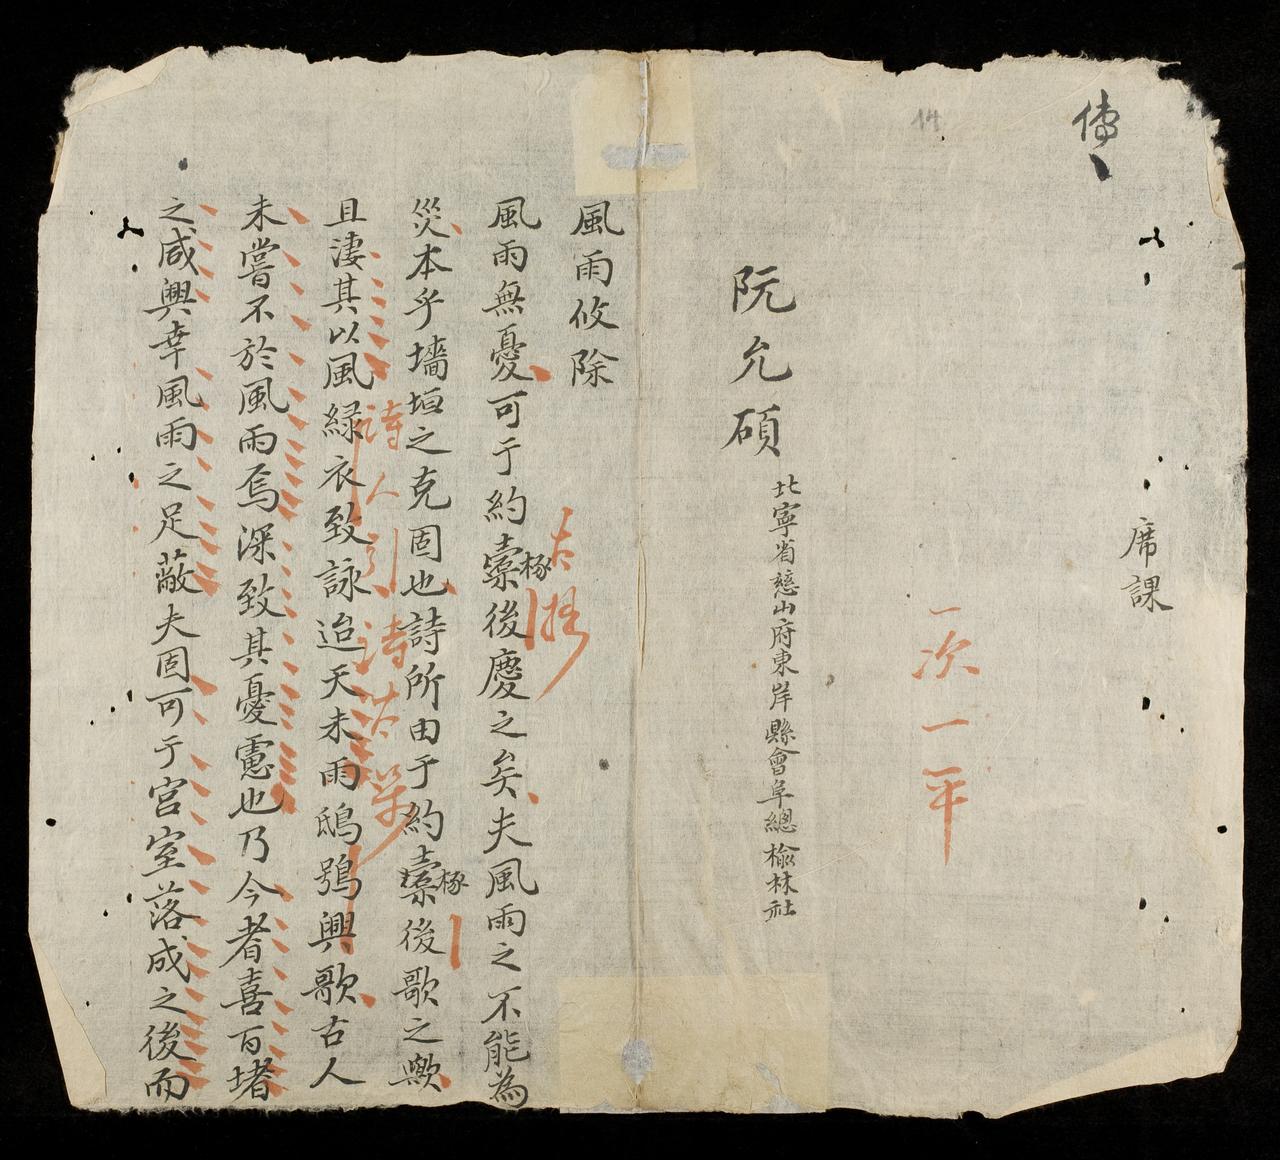 傳
席課
一次一平
阮允碩
北寧省慈山府東岸縣會阜總榆林社
風雨攸除
風雨無憂可于約橐椓後慶之矣夫風雨之不能為
災本乎墻垣之克固也詩所由于約橐椓後歌之歟
且淒其以風緑衣致詠迨天未雨鴟鴞興歌古人
詩人引詩
未嘗不於風雨焉深致其憂慮也乃今者喜百堵
之咸興幸風雨之足蔽夫固可于宮室落成之後而